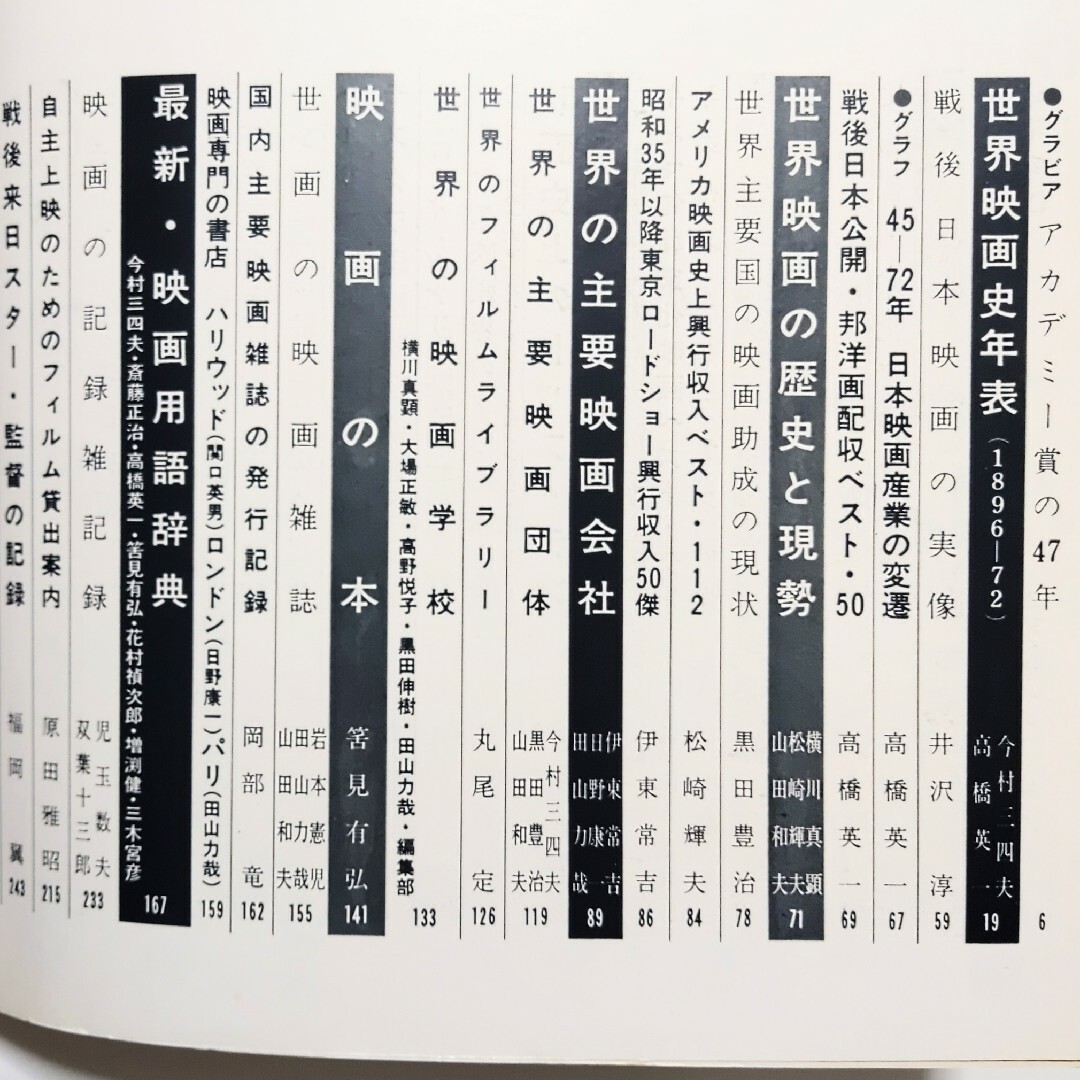 ●グラビア アカデミー賞の47年 6
世界映画史年表(1896—72) 今村三四夫 高橋英一 19
戦後日本映画の実像 井沢淳 59
●グラフ 45—72年 日本映画産業の変遷 高橋英一 67
戦後日本公開・邦洋画配収ベスト・50 高橋英一 69
世界映画の歴史と現勢 横川真顕 松崎輝夫 山田和夫 71
世界主要国の映画助成の現状 黒田豊治 78
アメリカ映画史上興行収入ベスト・112 松崎輝夫 84
昭和35年以降東京ロードショー興行収入50傑 伊東常吉 86
世界の主要映画会社 伊東常吉 日野康一 田山力哉 89
世界の主要映画団体 今村三四夫 黒田豊治 山田和夫 119
世界のフィルムライブラリー 丸尾定 126
世界の映画学校 133
横川真顕・大場正敏・高野悦子・黒田伸樹・田山力哉・編集部
映画の本 筈見有弘 141
世画の映画雑誌 岩本憲児 田山力哉 山田和夫 155
国内主要映画雑誌の発行記録 岡部竜 162
映画専門の書店 ハリウッド(関口英男)ロンドン(日野康一)パリ(田山力哉) 159
最新・映画用語辞典 167
今村三四夫・斎藤正治・高橋英一・筈見有弘・花村禎次郎・増渕健・三木宮彦
映画の記録雑記録 児玉数夫 双葉十三郎 233
自主上映のためのフィルム貸出案内 原田雅昭 215
戦後来日スター・監督の記録 福岡翼 243